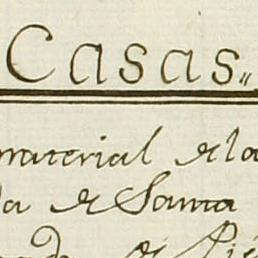 Casas.
material de la
da de Santa
de Pi